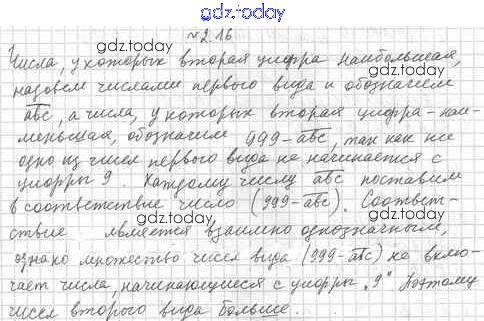 gdz.today
№2.16
gdz.today gdz.today
Числа, у которых вторая цифра наибольшая,
назовем числами первого вида и обозначим
gdz.today
abc, а числа, у которых вторая цифра - наи-
меньшая, обозначим 999-abc, так как не
одно из чисел первого вида не начинается с
gdz.today gdz.today
цифры 9. Каждому числу abc поставим
в соответствие число (999-abc). Соответ-
gdz.today
ствие является взаимно однозначным,
однако множество чисел вида (999-abc) не вклю-
gdz.today gdz.today
чает числа, начинающиеся с цифры "9" Поэтому
чисел второго вида больше.
gdz.today